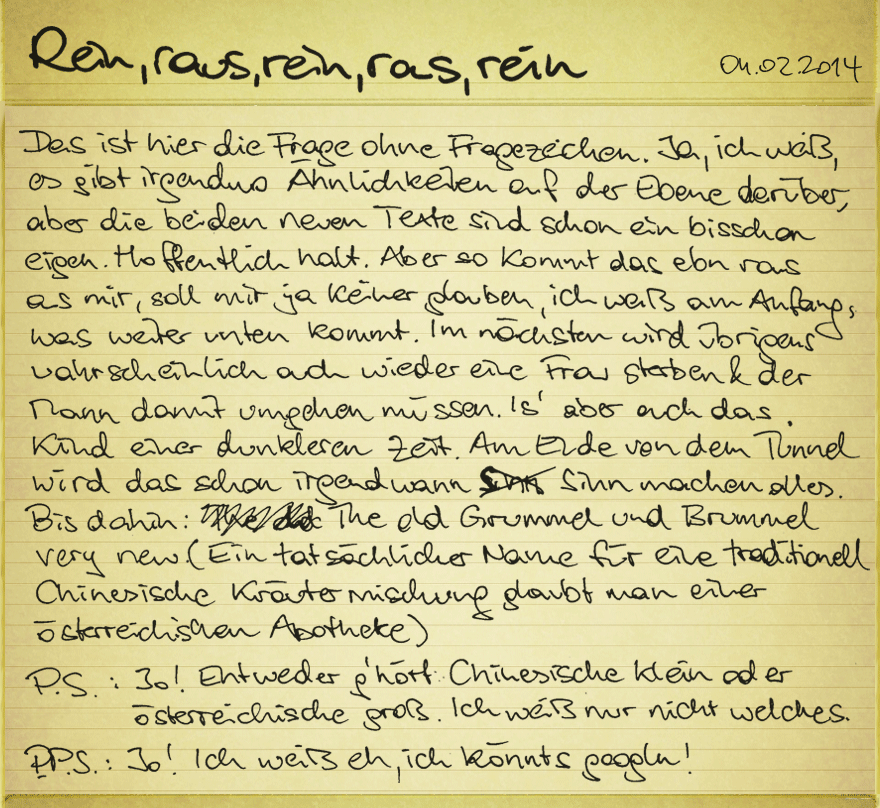 Rein, raus, rein, raus, rein
04.02.2014
Das ist hier die Frage ohne Fragezeichen. Ja, ich weiß,
es gibt irgendwo Ähnlichkeiten auf der Ebene darüber,
aber die beiden neuen Texte sind schon ein bisschen
eigen. Hoffentlich halt. Aber so kommt das ebn raus
aus mir, soll mir ja keiner glauben, ich weiß am Anfang,
was weiter unten kommt. Im nächsten wird übrigens
wahrscheinlich auch wieder eine Frau sterben & der
Mann damit umgehen müssen. Is' aber auch das
Kind einer dunkleren Zeit. Am Ende von dem Tunnel
wird das schon irgendwann Sinn machen alles.
Bis dahin: The old Grummel und Brummel
very new. (Ein tatsächlicher Name für eine traditionell
Chinesische Kräutermischung glaubt man einer
österreichischen Apotheke)
P.S.: Jo! Entweder g'hört Chinesische klein oder
österreichische groß. Ich weiß nur nicht welches.
P.P.S.: Jo! Ich weiß eh, ich könnts googln!